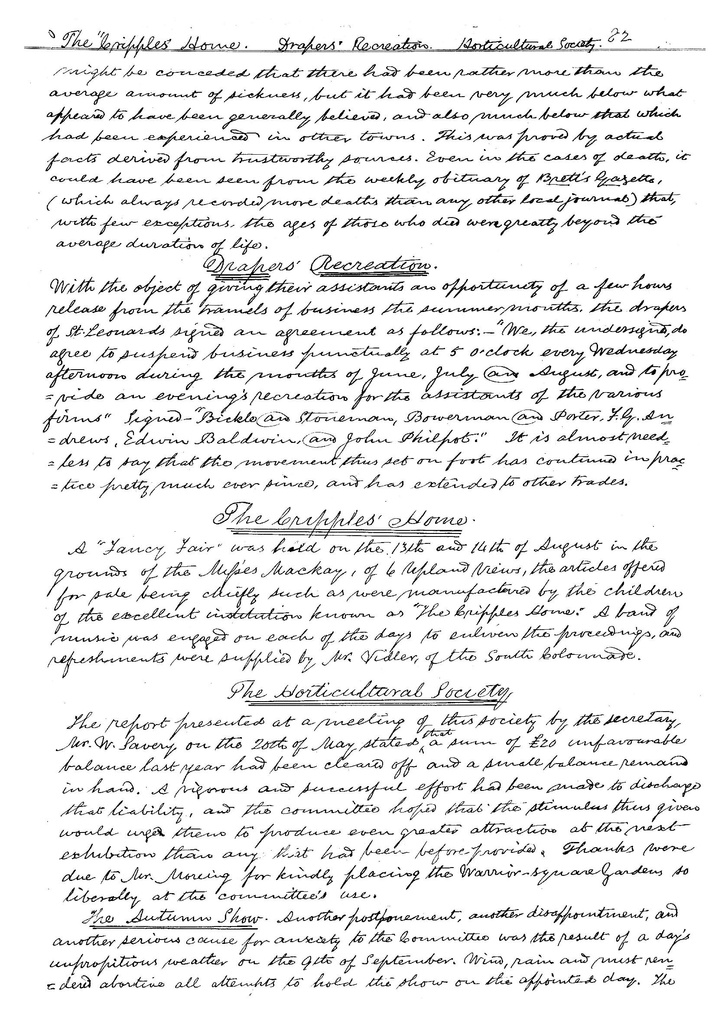 The "Cripples' Home. Drapers' Recreation. Horticultural Society. 82
might be conceded that there had been rather more than the
average amount of sickness, but it had been very much below what
appeared to have been generally believed, and also much below that which
had been experienced in other towns. This was proved by actual
facts derived from trustworthy sources. Even in the cases of death, it
could have been seen from the weekly obituary of Brett's Gazette,
(which always recorded more deaths than any other local journal) that,
with few exceptions, the ages of those who died were greatly beyond the
average duration of life.
Drapers' Recreation.
With the object of giving their assistants an opportunety of a few hours
release from the tramels of business the summer months, the drapers
of St. Leonards signed an agreement as follows:— "We, the undersigned, do
agree to suspend business punctually at 5 o'clock every Wednesday
afternoon during the months of June, July and August, and to pro-
=vide an evening's recreation for the assistants of the various
firms" Signed— "Bickle and Stoneman, Bowerman and Porter, F. G. An-
=drews, Edwin Baldwin, and John Philpot." It is almost need-
=less to say that the movement thus set on foot has continued in prac-
=tice pretty much ever since, and has extended to other trades.
The Cripples' Home.
A "Fancy Fair" was held on the 13th and 14th of August in the
grounds of the Misses Mackay, of 6 Upland Views, the articles offered
for sale being chiefly such as were manufactured by the children
of the excellent institution known as "The Cripples Home." A band of
music was engaged on each of the days to enliven the proceedings, and
refreshments were supplied by Mr. Vidler, of the South Colonnade.
The Horticultural Society
The report presented at a meeting of this society by the secretary,
Mr. W. Savery, on the 20th of May stated that a sum of £20 unfavourable
balance last year had been cleared off and a small balance remaind
in hand. A vigorous and successful effort had been made to discharge
that liability, and the committee hoped that the stimulus thus given
would urge them to produce even greater attraction at the next
exhibition than any that had been before provided. Thanks were
due to Mr. for kindly placing the Warrior-square Gardens so
liberally at the committee's use.
The Autumn Show. Another postponement, another disappointment, and
another serious cause for anxiety to the Committee was the result of a day's
unpropitious weather on the 9th of September. Wind, rain and mist ren-
=dered abortive all attempts to hold the show on the appointed day. The